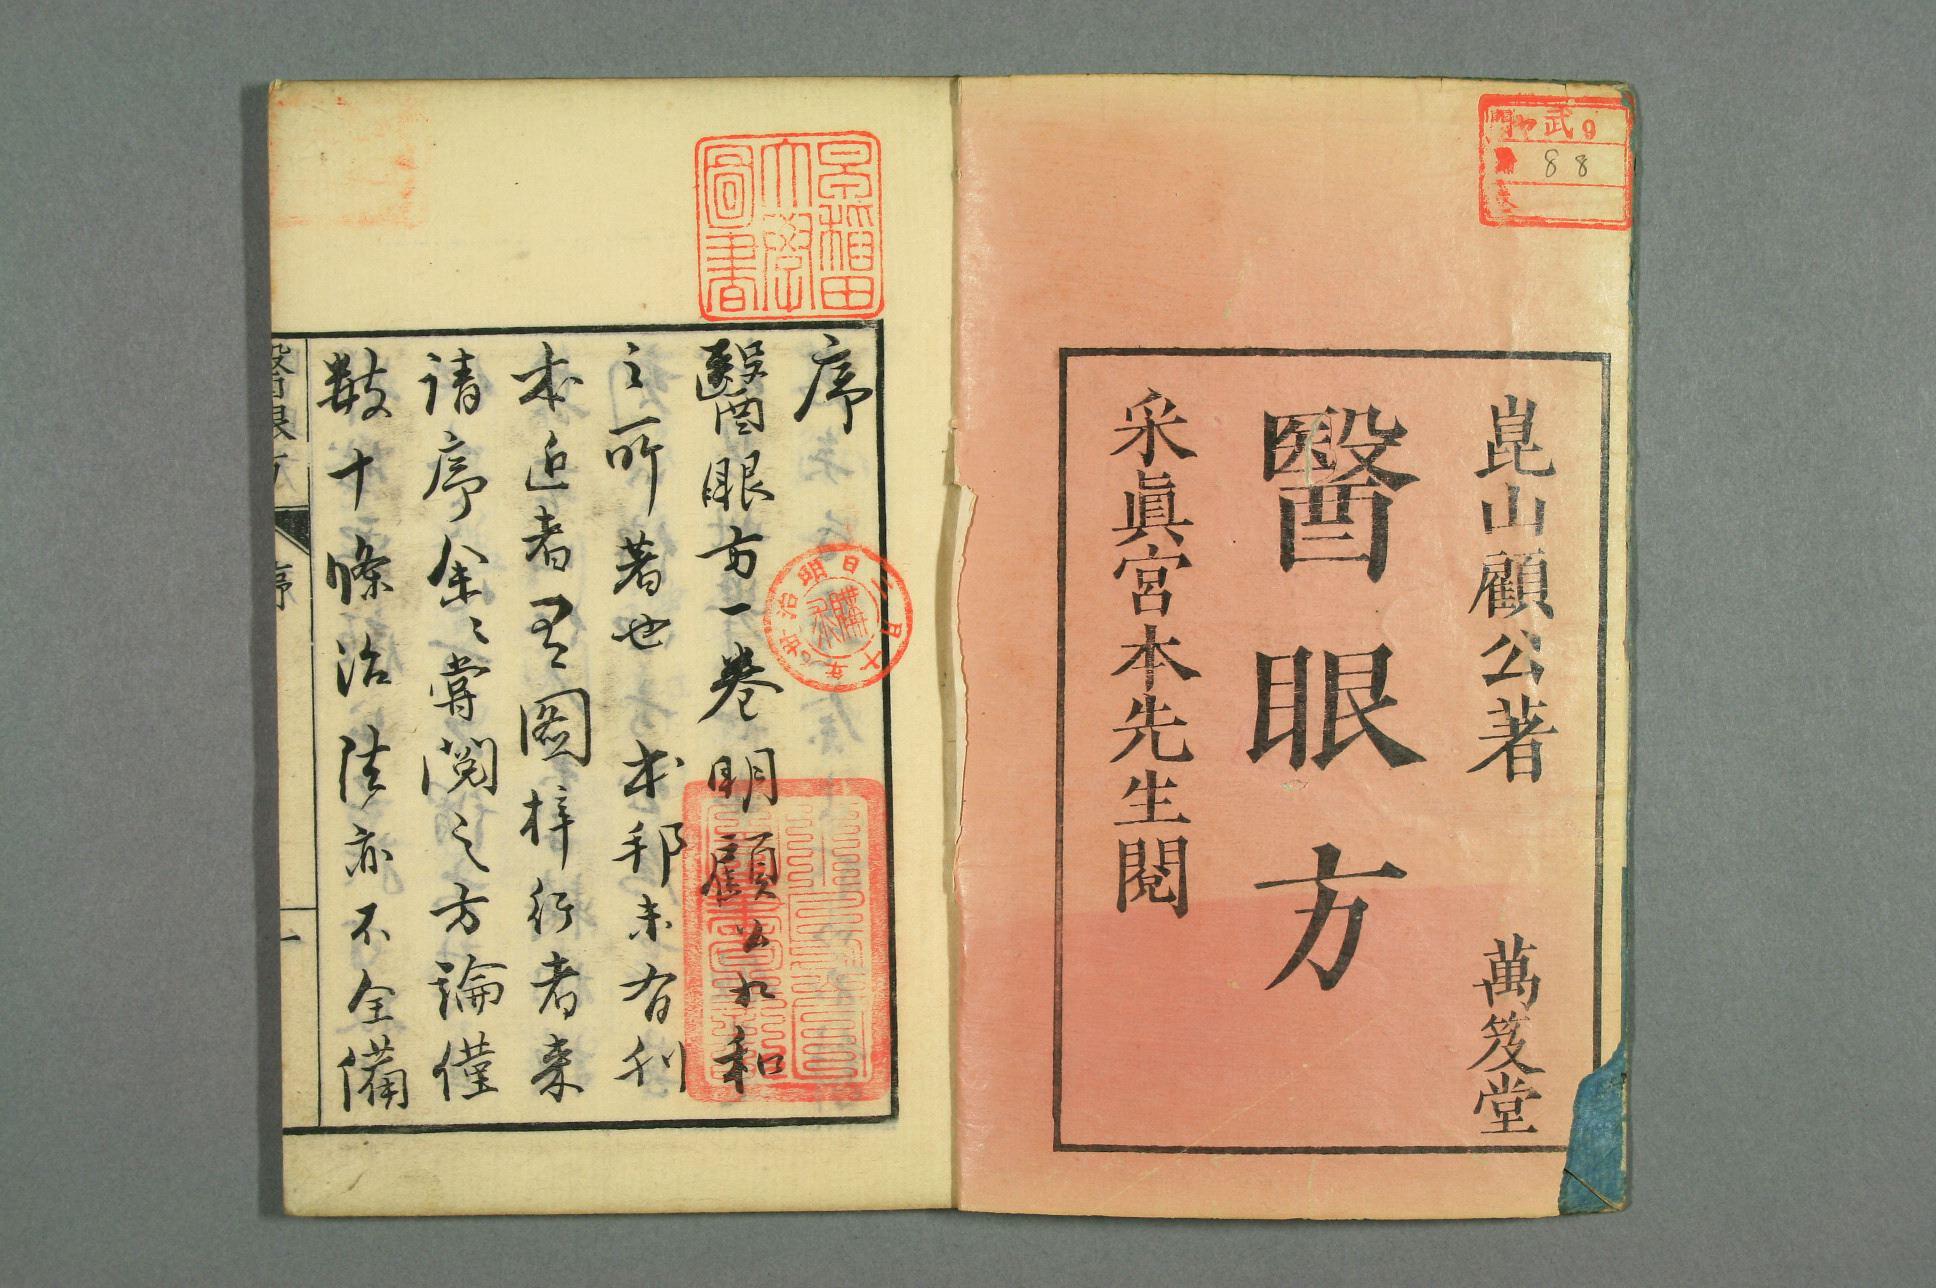 崑山顧公著
萬笈堂
醫眼方
采眞宮本先生閱
武9
88
早稻田
大學
圖書
序
醫眼方一卷明顧公九和
之所著也本邦未有刊
本近者有圖梓行者來
請序余々嘗閱之方論僅
數十條治法亦不全備
醫眼方
序
一